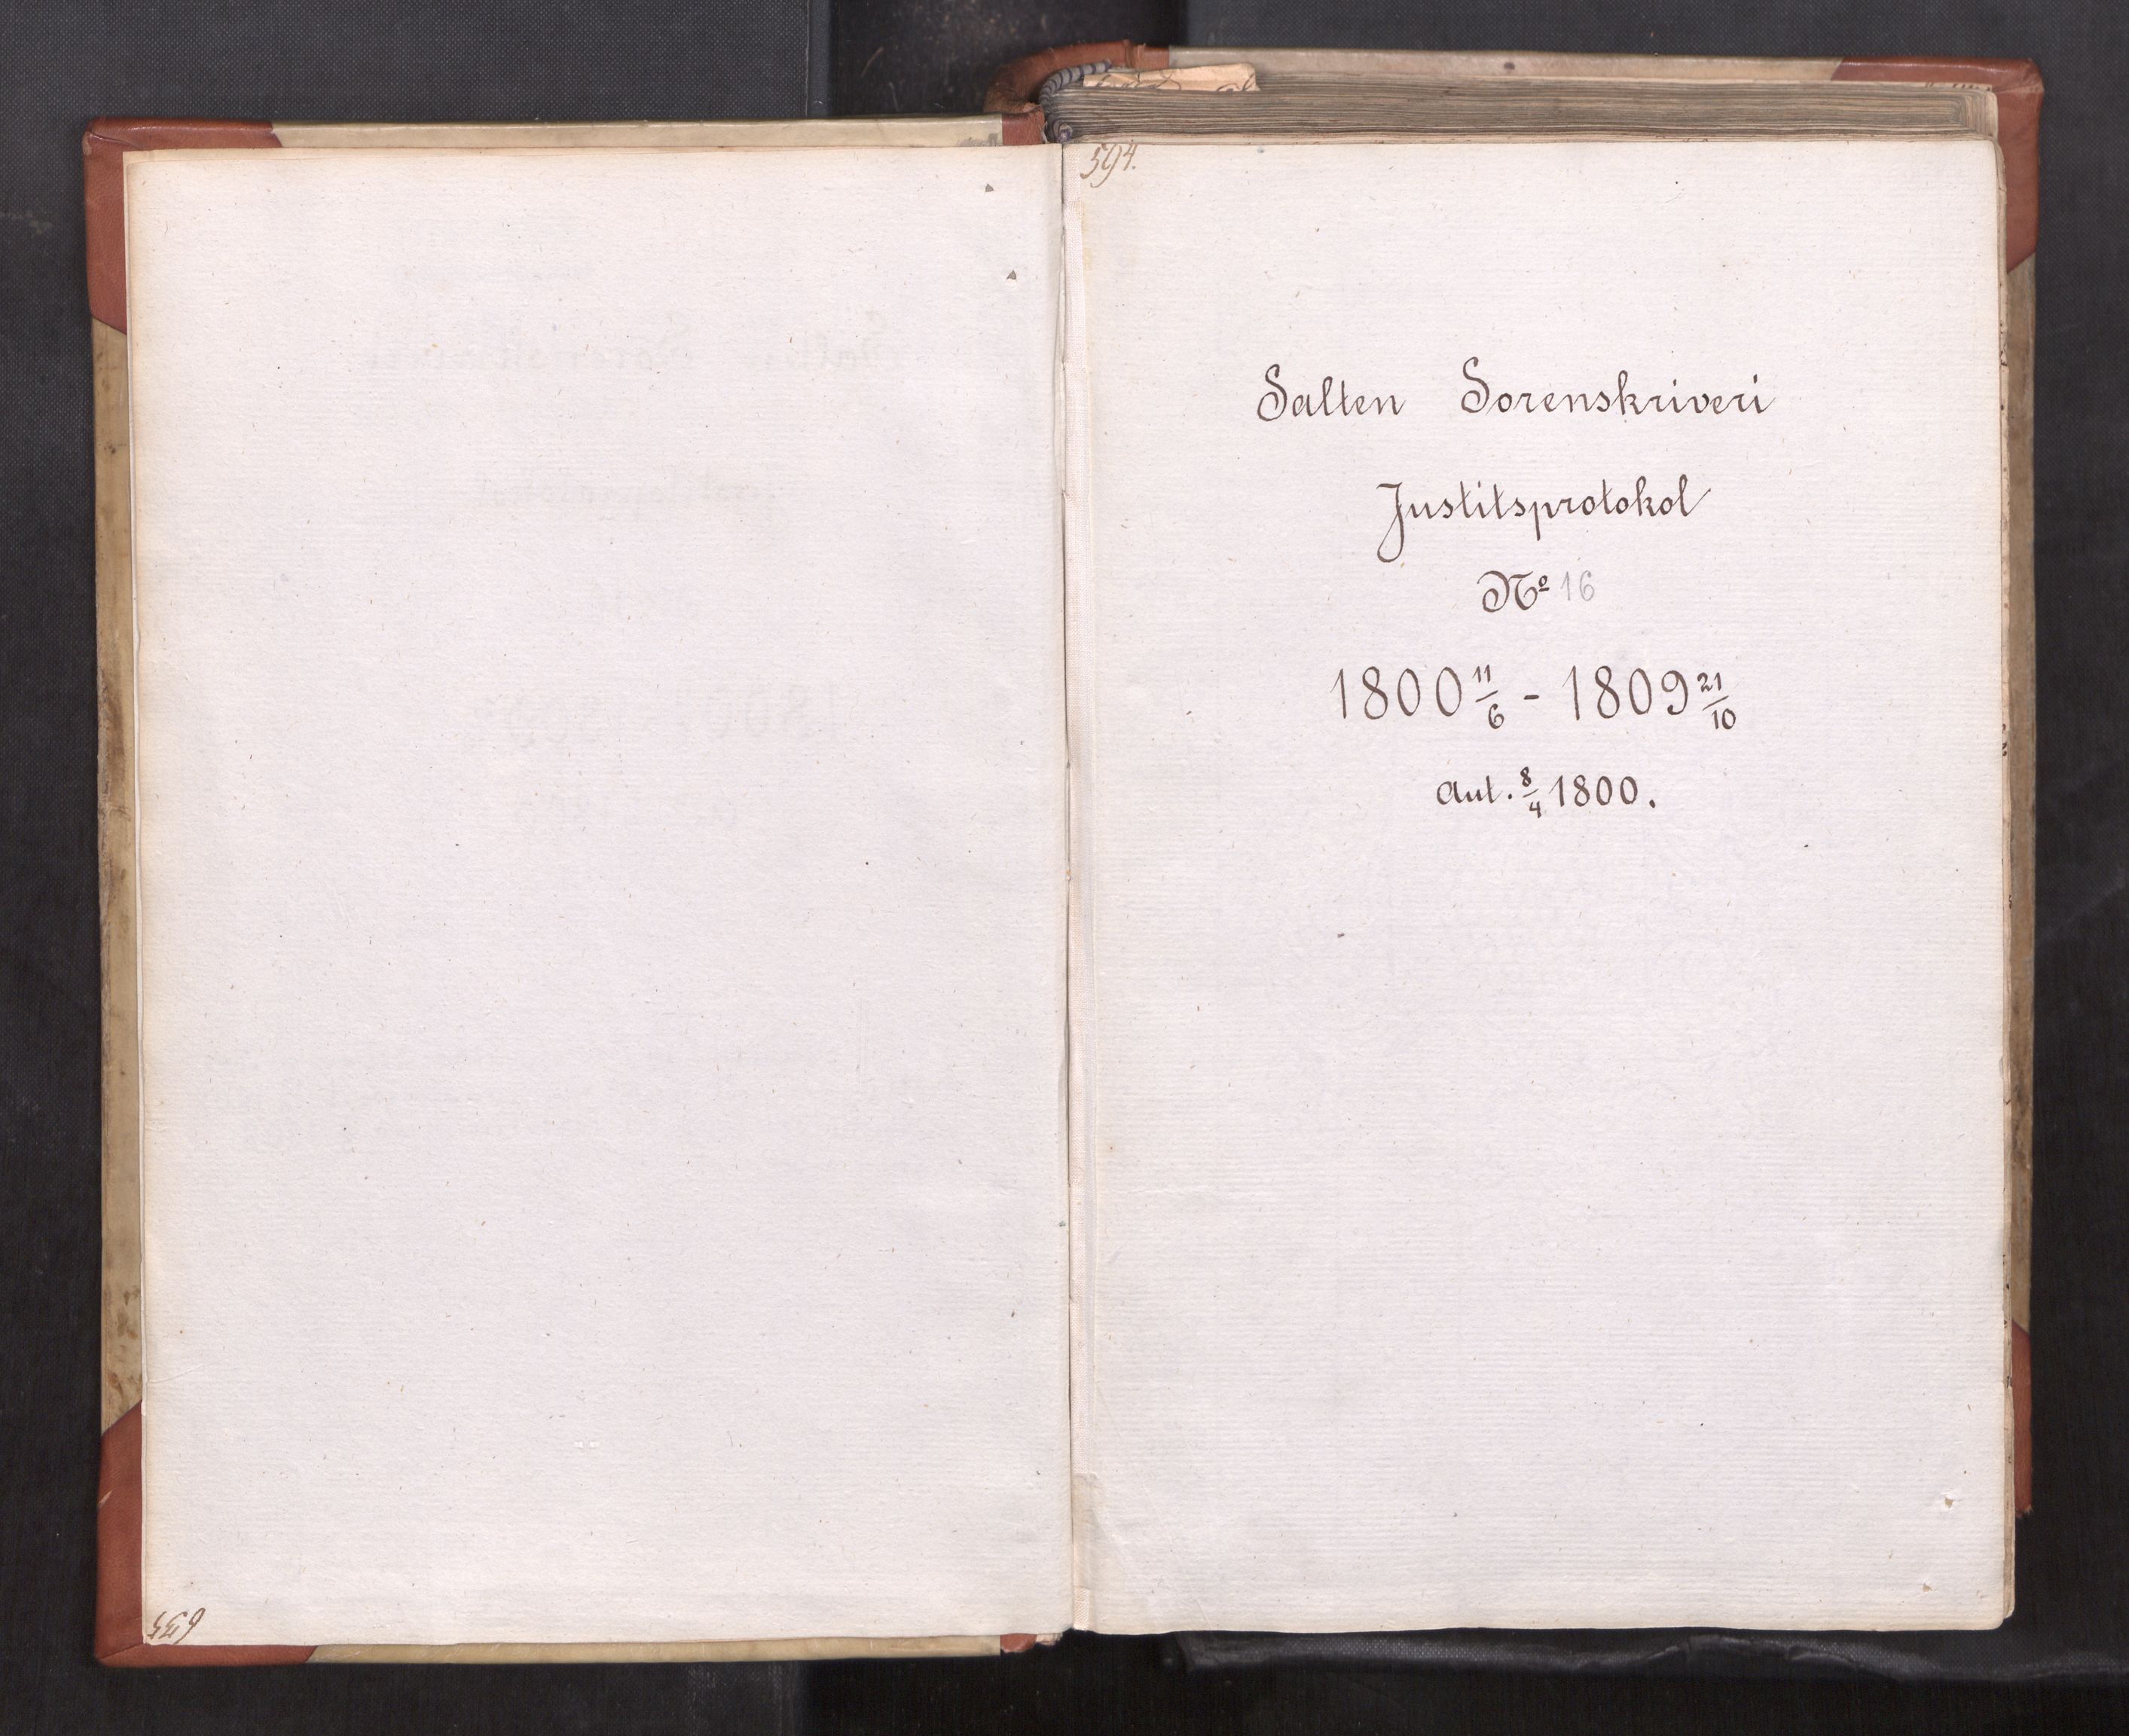 594.
Salten Sorenskriveri
Justitsprotokol
Nº 16
1800 11/6 - 1809 21/10
Aut. 8/4 1800.